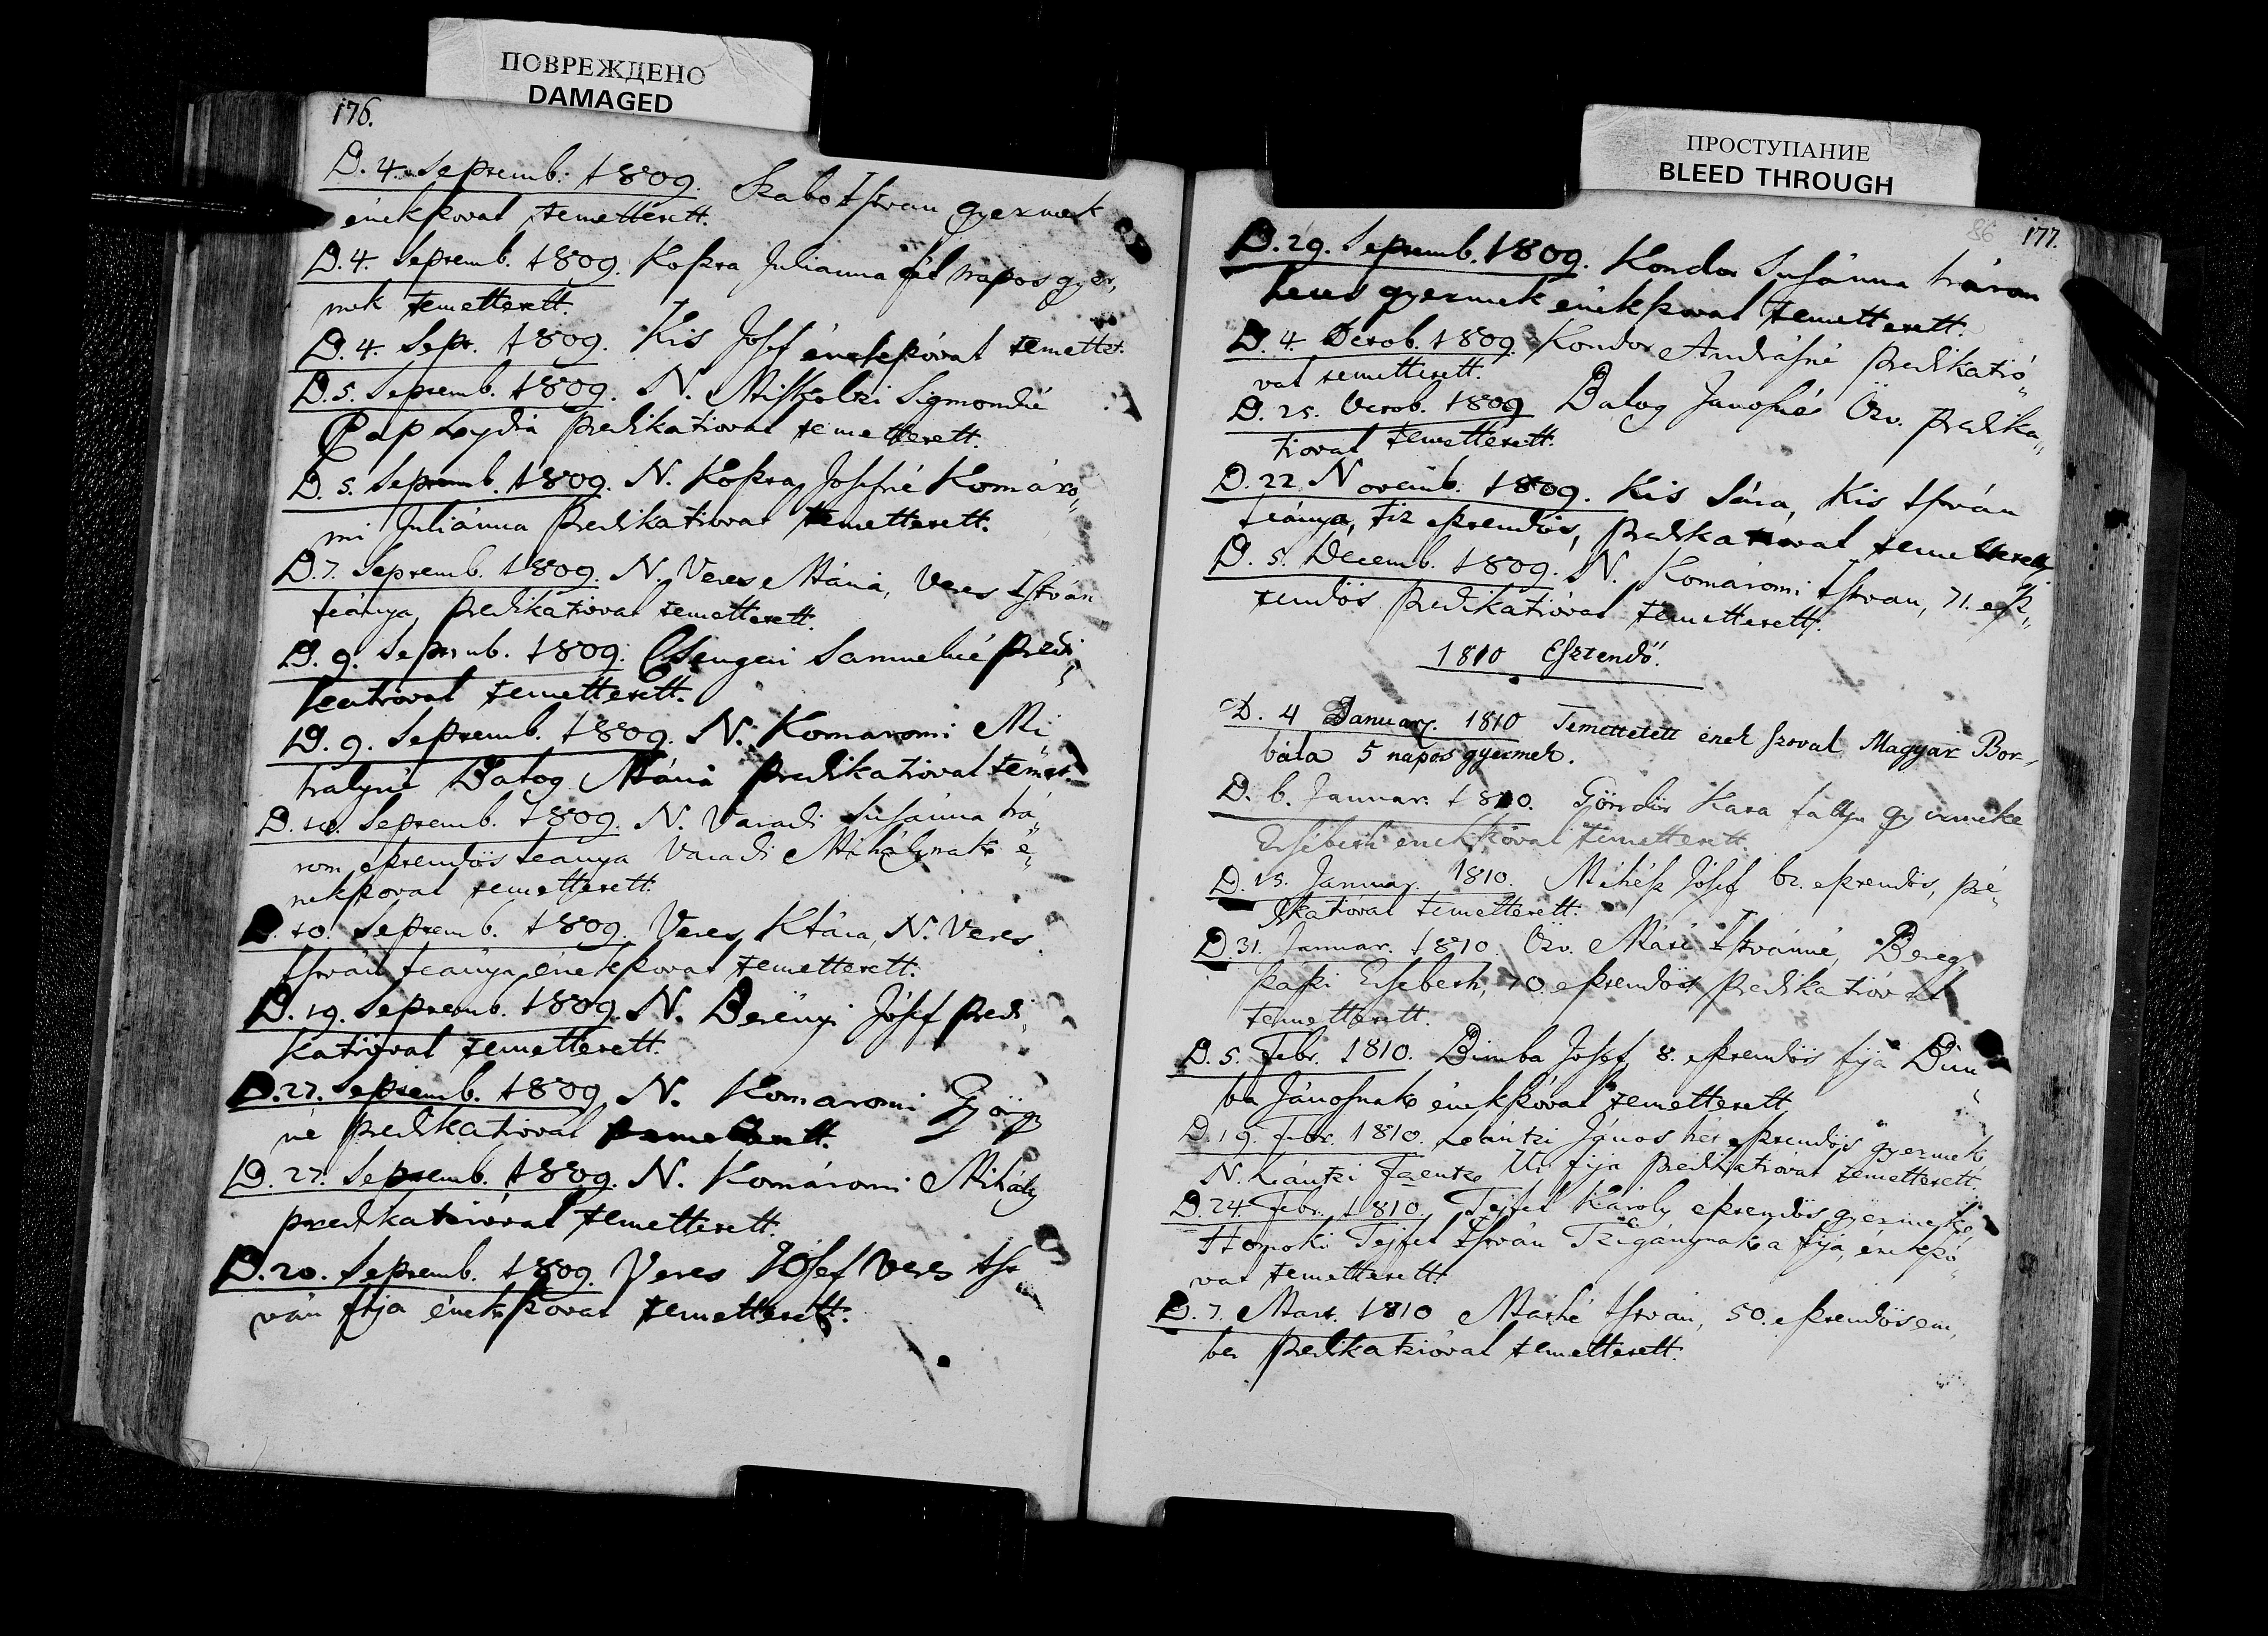 ПОВРЕЖДЕНО
DAMAGED
176.
D. 4. Septemb. 1809. Szabo Istvan gyermek
énekszoval temettetett.
D. 4. Septemb. 1809. Koszta Julianna fél napos gyer„
mek temettetett.
D. 4. Sept. 1809. Kis Josef énekszóval temette.
D. 5. Septemb. 1809. N. Miskoltzi Sigmondné
Pap Lydia predikatioval temettetett.
D. 5. Septemb. 1809. N. Koszta Josefné Komáro„
mi Juliánna Predikatioval temettetett.
D. 7. Septemb. 1809. N. Veres Mária, Veres István
leánya, predikatioval temettetett.
D. 9. Septemb. 1809. Csengeri Samuelné predi„
katioval temettetett.
D. 9. Septemb. 1809. N. Komaromi Mi„
halyné Balog Mária predikatioval temet.
D. 10. Septemb. 1809. N. Varadi Susánna há„
rom esztendös leanya Varadi Mihálynak é„
nekszoval temettetett.
D. 10. Septemb. 1809. Veres Klára, N. Veres
István leánya énekszoval temettetett.
D. 19. Septemb. 1809. N. Berényi Jósef predi„
katioval temettetett.
D. 27. Septemb. 1809. N. Komaromi György
né predikatioval temettetett.
D. 27. Septemb. 1809. N. Komáromi Mihály
predikatióval temettetett.
D. 20. Septemb. 1809. Veres Jósef Veres Ist
ván fija énekszoval temettetett.
ПРОСТУПАНИЕ
BLEED THROUGH
86 177.
D. 29. Septemb. 1809. Kondor Susánna három
hetes gyermek énekszoval temettetett.
D. 4. Octob. 1809. Kondor Andrásné predikatió„
val temettetett.
D. 25. Octob. 1809 Balog Janosné Özv. predika„
tioval temettetett.
D. 22 Novemb. 1809. Kis Sára, Kis István
leánya, tiz esztendös, predikatioval temettetett
D. 5. Decemb. 1809. N. Komáromi Istvan, 71. esz„
tendös predikatióval temettetett.
1810 Esztendő.
D. 4 January. 1810 Temettetett ének szoval Magyar Bor„
bála 5 napos gyermek.
D. 6. Januar. 1810. Göndör Kata gyermeke
Ersébeth énekszóval temettetett.
D. 15. Januar. 1810. Mihész Jósef esztendös, pré„
dikatióval temettetett.
D. 31. Januar. 1810. Özv. Máté Istvánné, Bereg
szászi Ersébeth, 70. esztendös predikatióval
temettetett.
D. 5. Febr. 1810. Bimba Josef, 8. esztendös fija Bim„
ba Jánosnak énekszóval temettetett
D. 19. Febr. 1810. Lántzi János hét esztendös gyermek
N. Lántzi Ferentz Úr fija predikatióval temettetett.
D. 24. Febr. 1810. Tejfel Károly esztendös gyermek,
Homoki Tejfel István Tzigánynak a fija, énekszó„
val temettetett.
D. 7. Mart. 1810 Máthé István, 50. esztendös em„
ber predikatzióval temettetett.